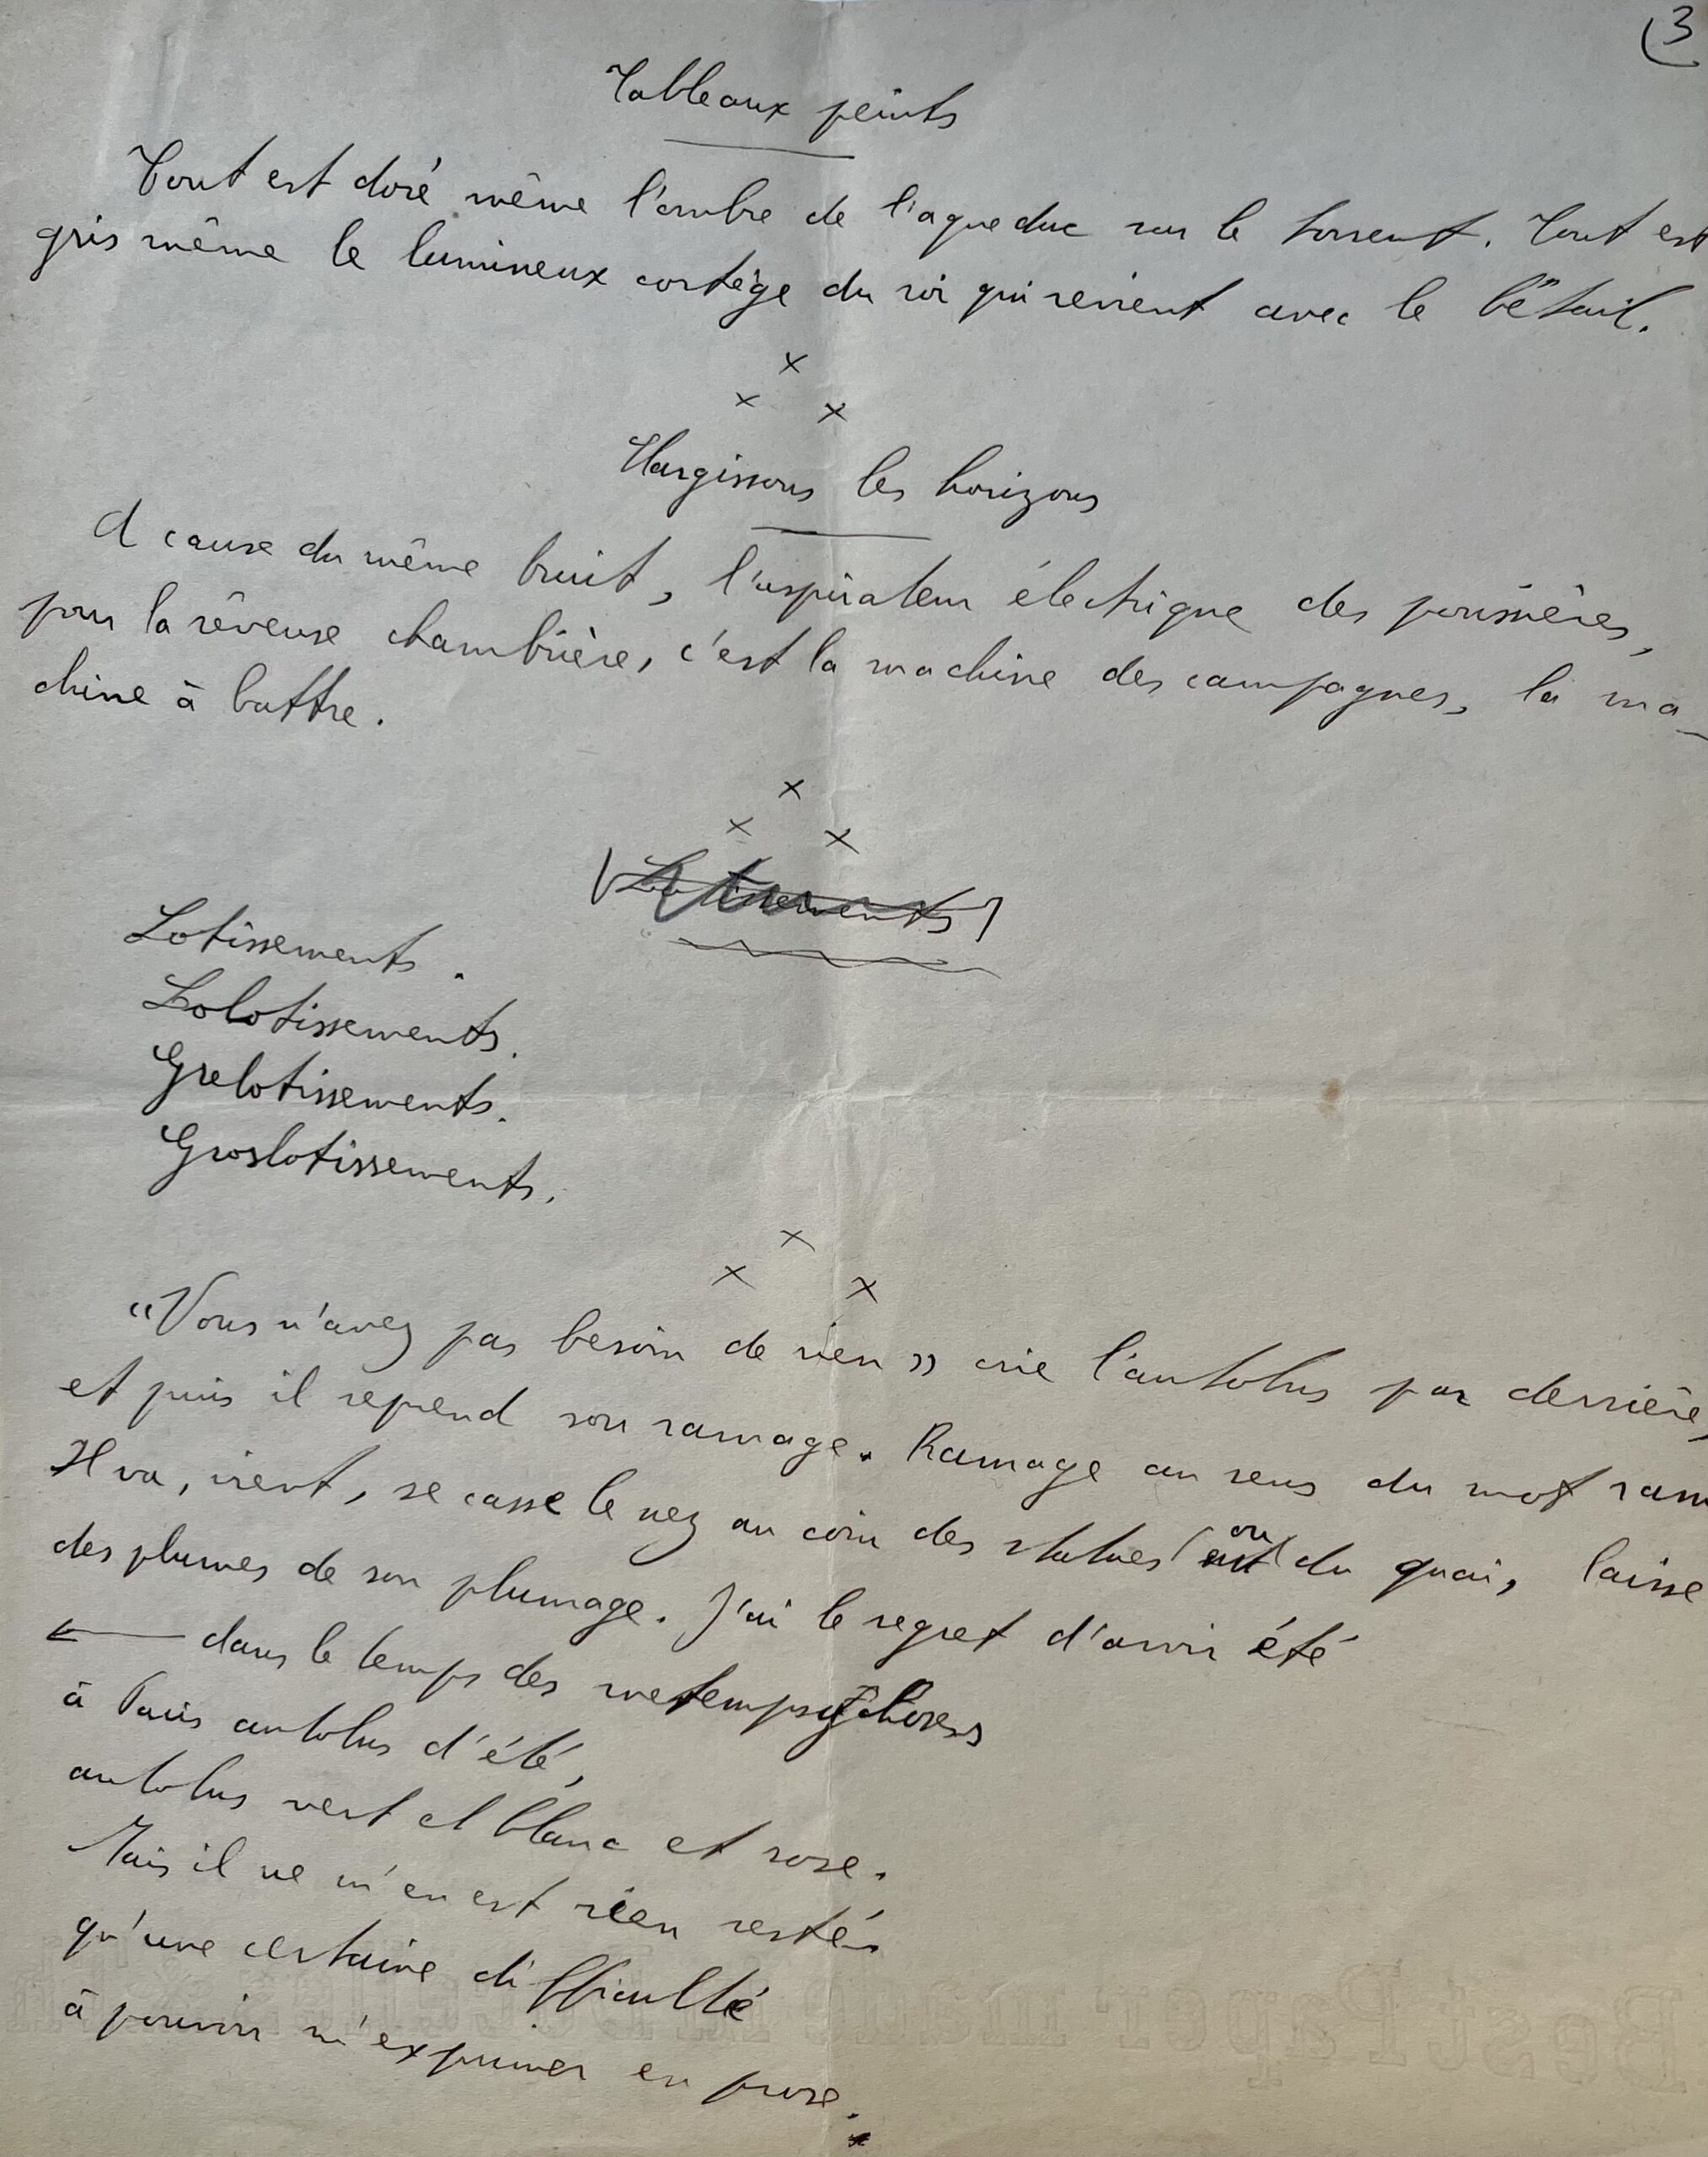 3
Tableaux peints
Tout est doré même l'ombre de l'aqueduc sur le torrent. Tout est
gris même le lumineux cortège du roi qui revient avec le bétail.
x
x x
Elargissons les horizons
A cause du même bruit, l'aspirateur électrique des poussières,
pour la rêveuse chambrière, c'est la machine des campagnes, la ma-
chine à battre.
x
x x
Lotissements
Lotissements.
Lolotissements.
Grelotissements.
Groslotissements.
x
x x
"Vous n'avez pas besoin de rien" crie l'autobus par derrière,
et puis il reprend son ramage. Ramage au sens du mot ram
Il va, vient, se casse le nez au coin des statues (ou) du quai, laisse
des plumes de son plumage. J'ai le regret d'avoir été
← dans le temps des metempsychoses
à Paris autobus d'été,
autobus vert et blanc et rose.
Mais il ne m'en est rien resté
qu'une certaine difficulté
à pouvoir m'exprimer en prose.